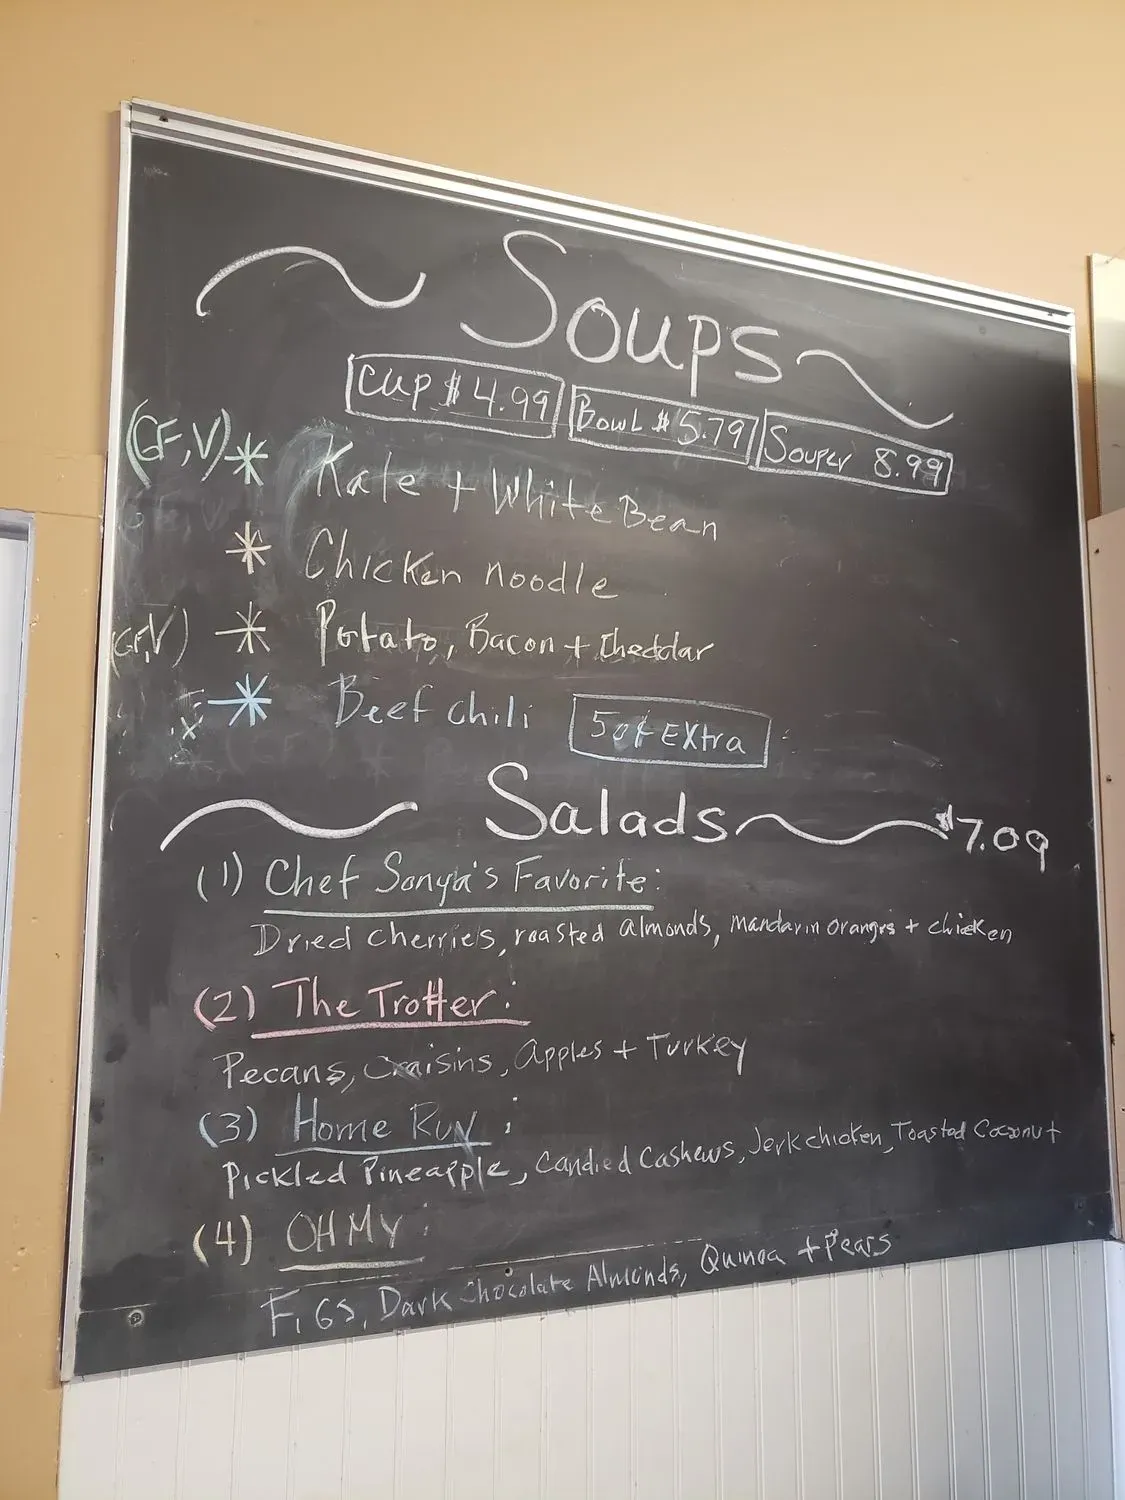 Soups
Cup $4.99 Bowl $5.79 Souper 8.99
(GF,V) * Kale + White Bean
* Chicken noodle
(GF,V) * Potato, Bacon + Cheddar
* Beef chili 50¢ Extra
Salads $7.09
(1) Chef Sonya's Favorite:
Dried cherries, roasted almonds, mandarin oranges + chicken
(2) The Trotter:
Pecans, Craisins, apples + Turkey
(3) Home Run:
Pickled Pineapple, Candied Cashews, Jerk chicken, Toasted Coconut
(4) OH MY:
FiGs, Dark Chocolate Almonds, Quinoa + Pears